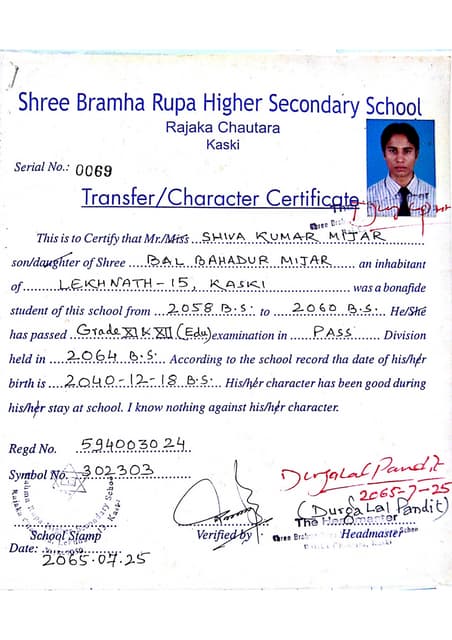 Shree Bramha Rupa Higher Secondary School
Rajaka Chautara
Kaski
Serial No.: 0069
Transfer/Character Certificate
This is to Certify that Mr./Miss SHIVA KUMAR MIJAR
son/daughter of Shree BAL BAHADUR MIJAR an inhabitant
of LEKHNATH-15, KASKI was a bonafide
student of this school from 2058 B.S. to 2060 B.S. He/She
has passed Grade XI & XII (Edu) examination in PASS Division
held in 2064 B.S. According to the school record tha date of his/her
birth is 2040-12-18 B.S. His/her character has been good during
his/her stay at school. I know nothing against his/her character.
Regd No. 594003024
Symbol No. 302303
DurgaLal Pandit
2065-7-25
(Durga Lal Pandit)
The Headmaster
School Stamp Verified by Headmaster
Kaski
Date: 2065.07.25